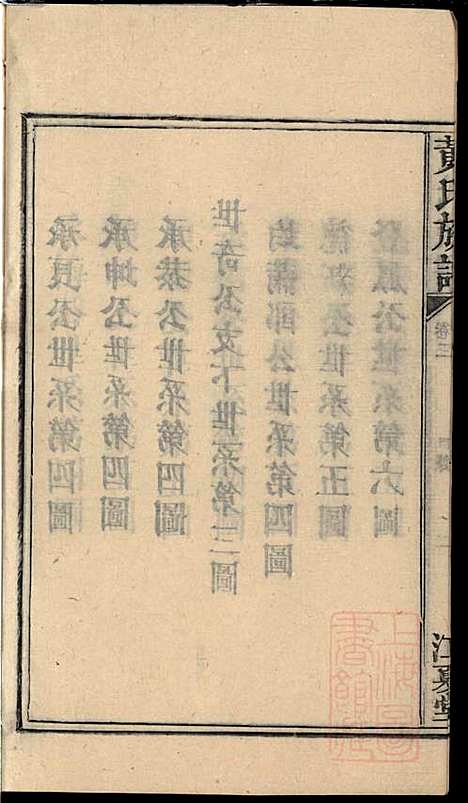 黃氏族譜
卷三
江夏堂
公世系第六圖
公世系第五圖
郎公世系第四圖
世奇公支下世系第三圖
承恭公世系第四圖
承坤公世系第四圖
承良公世系第四圖
上海圖書館藏